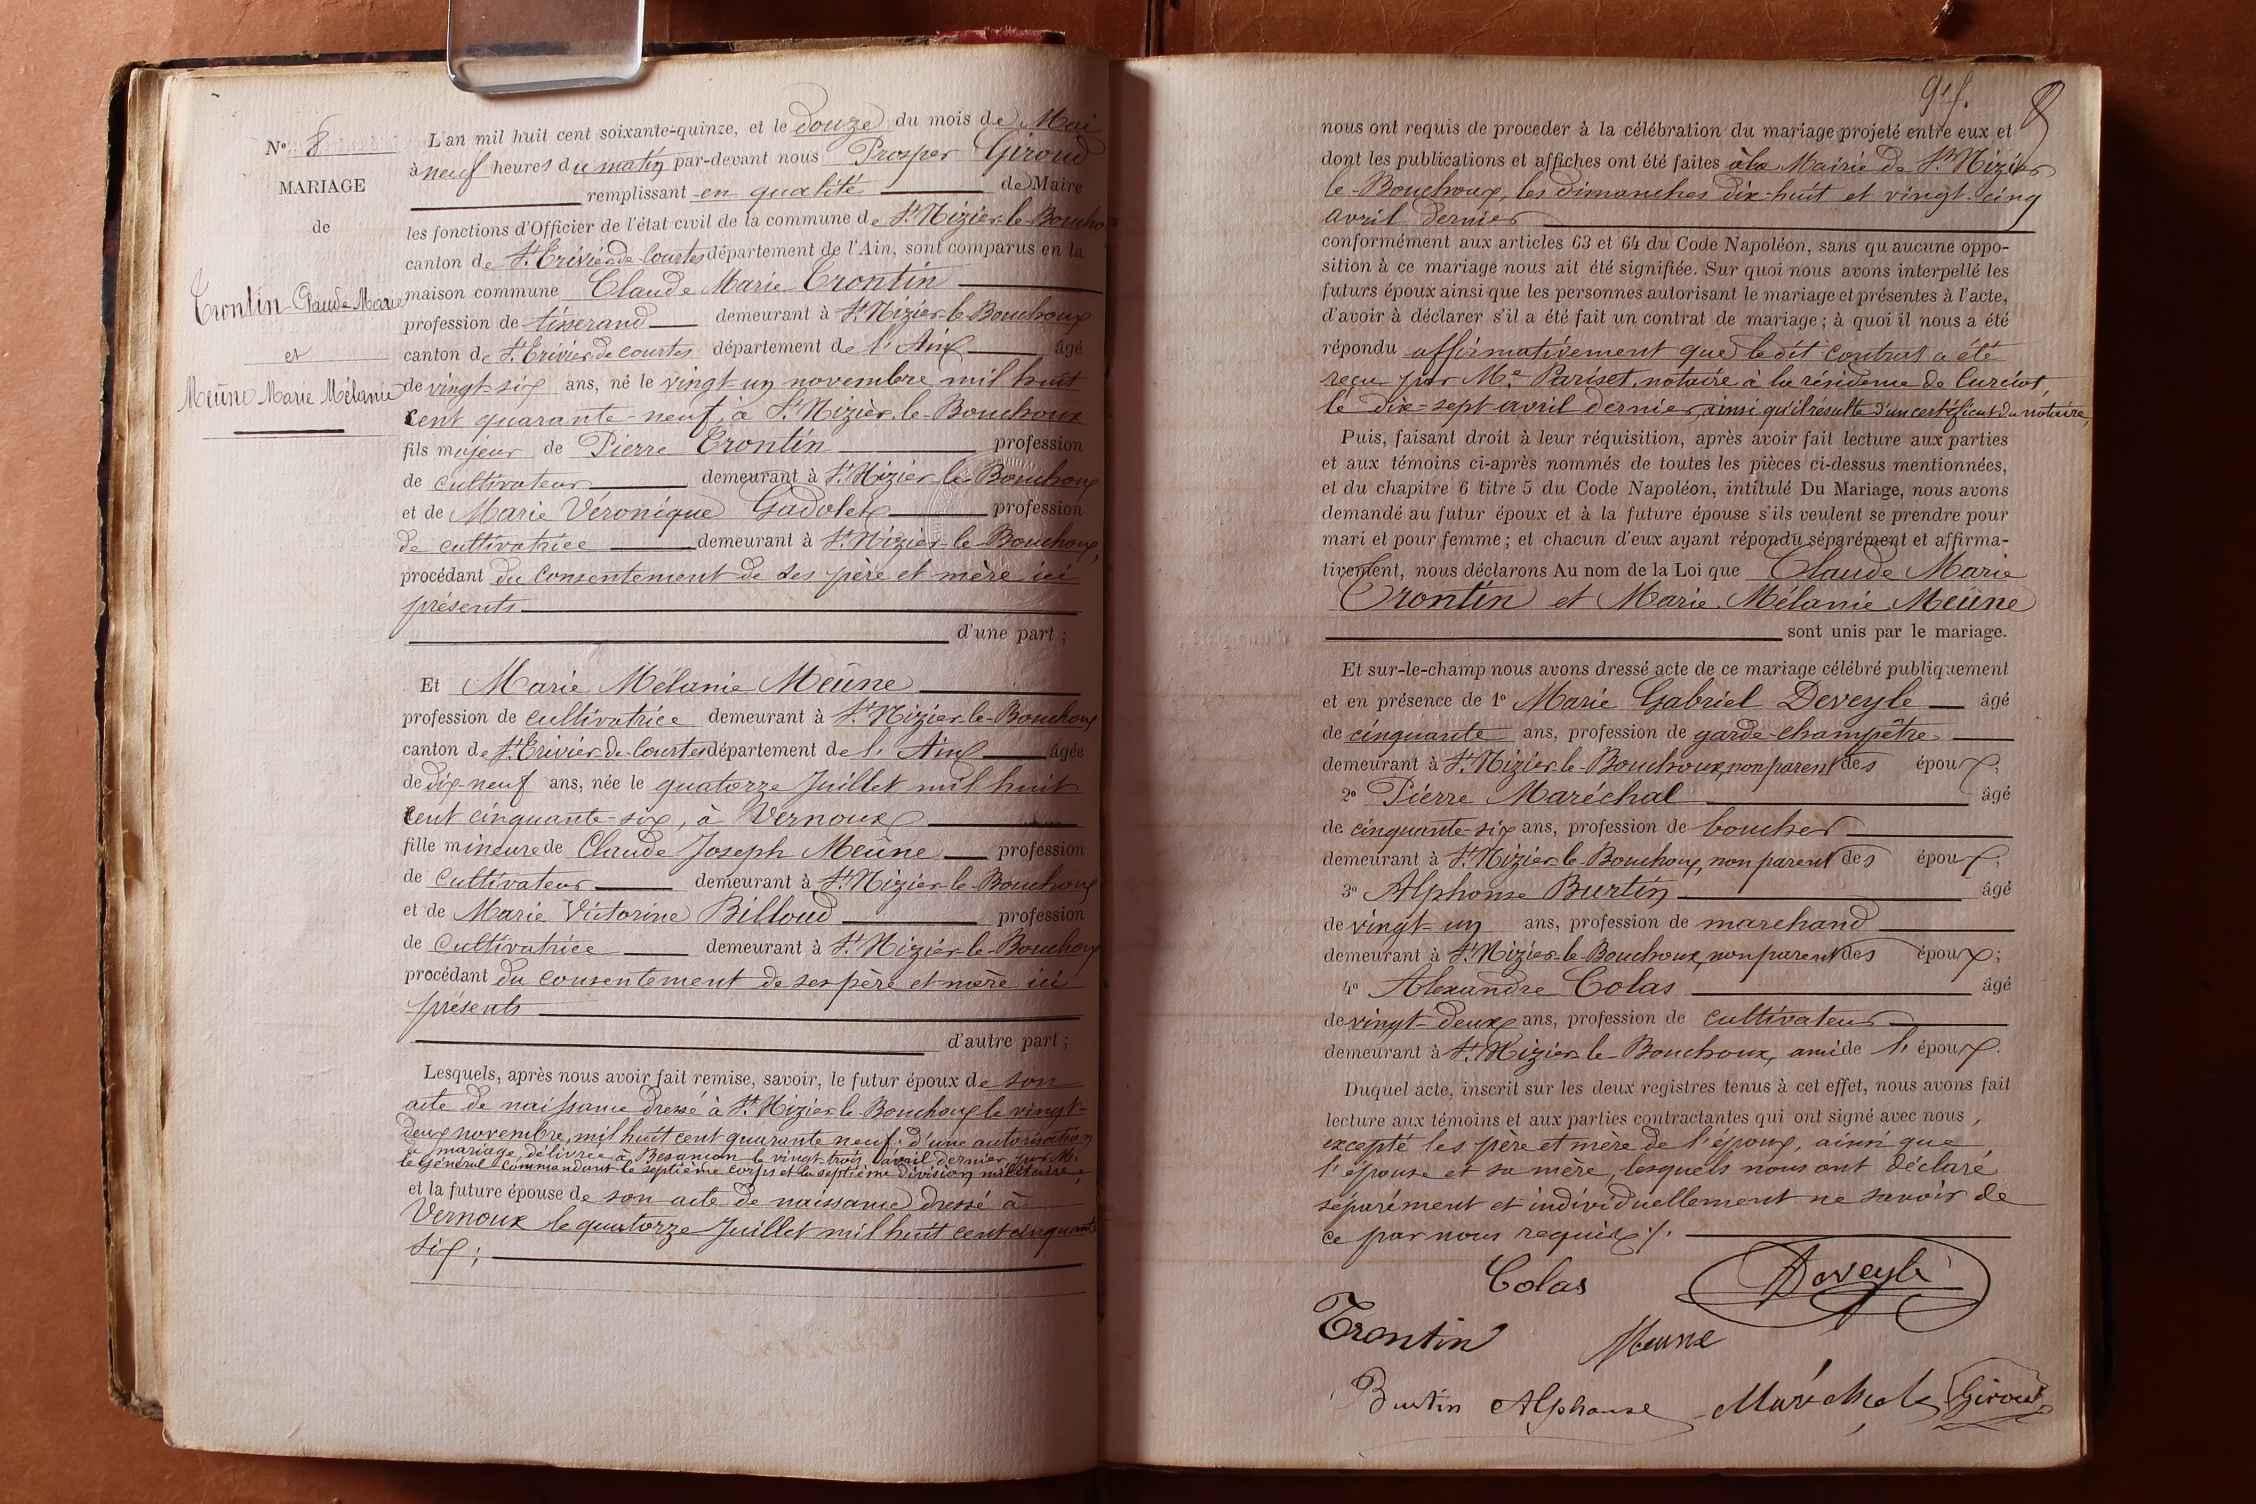 N° 8
MARIAGE
de
Trontin Claude Marie
et
Meüne Marie Mélanie
L'an mil huit cent soixante-quinze, et le douze du mois de Mai
à neuf heures du matin par-devant nous Prosper Giroud
remplissant en qualité de Maire
les fonctions d'Officier de l'état civil de la commune de St Nizier-le-Boucho
canton de St. Trivier-de-Courtes département de l'Ain, sont comparus en la
maison commune Claude Marie Trontin
profession de tisserand demeurant à St Nizier-le-Bouchoux
canton de St. Trivier de courtes département de l'Ain âgé
de vingt-six ans, né le vingt-un novembre mil huit
cent quarante-neuf, à St Nizier-le-Bouchoux
fils majeur de Pierre Trontin profession
de cultivateur demeurant à St Nizier-le-Bouchoux
et de Marie Véronique Gadolet profession
de cultivatrice demeurant à St Nizier-le-Bouchoux,
procédant du consentement de ses père et mère ici
présents
d'une part ;
Et Marie Mélanie Meüne
profession de cultivatrice demeurant à St Nizier-le-Bouchoux
canton de St. Trivier-de-Courtes département de l'Ain âgée
de dix-neuf ans, née le quatorze Juillet mil huit
cent cinquante-six, à Vernoux
fille mineure de Claude Joseph Meüne profession
de cultivateur demeurant à St Nizier-le-Bouchoux
et de Marie Victorine Billoud profession
de Cultivatrice demeurant à St Nizier-le-Bouchoux
procédant du consentement de ses père et mère ici
présents
d'autre part ;
Lesquels, après nous avoir fait remise, savoir, le futur époux de son
acte de naissance dressé à St. Nizier-le-Bouchoux le vingt-
deux novembre, mil huit cent quarante neuf; d'une autorisation
de mariage, délivrée à Besançon le vingt-trois avril dernier, par Mr.
le Général Commandant le septième corps et la septième division militaire;
et la future épouse de son acte de naissance dressé à
Vernoux le quatorze Juillet mil huit cent cinquante
six ;
8
nous ont requis de procéder à la célébration du mariage projeté entre eux et
dont les publications et affiches ont été faites à la Mairie de St. Nizier
le-Bouchoux, les dimanches dix-huit et vingt-cinq
avril dernier
conformément aux articles 63 et 64 du Code Napoléon, sans qu'aucune oppo-
sition à ce mariage nous ait été signifiée. Sur quoi nous avons interpellé les
futurs époux ainsi que les personnes autorisant le mariage et présentes à l'acte,
d'avoir à déclarer s'il a été fait un contrat de mariage ; à quoi il nous a été
répondu affirmativement que ledit contrat a été
reçu par Me. Pariset, notaire à la résidence de Curciat,
le dix-sept avril dernier, ainsi qu'il résulte d'un certificat du notaire,
Puis, faisant droit à leur réquisition, après avoir fait lecture aux parties
et aux témoins ci-après nommés de toutes les pièces ci-dessus mentionnées,
et du chapitre 6 titre 5 du Code Napoléon, intitulé Du Mariage, nous avons
demandé au futur époux et à la future épouse s'ils veulent se prendre pour
mari et pour femme ; et chacun d'eux ayant répondu séparément et affirma-
tivement, nous déclarons Au nom de la Loi que Claude Marie
Trontin et Marie Mélanie Meüne
sont unis par le mariage.
Et sur-le-champ nous avons dressé acte de ce mariage célébré publiquement
et en présence de 1° Marie Gabriel Deveyle âgé
de cinquante ans, profession de garde-champêtre
demeurant à St. Nizier-le-Bouchoux, non parent des époux;
2° Pierre Maréchal âgé
de cinquante-six ans, profession de boucher
demeurant à St. Nizier-le-Bouchoux, non parent des époux;
3° Alphonse Burtin âgé
de vingt-un ans, profession de marchand
demeurant à St. Nizier-le-Bouchoux, non parent des époux;
4° Alexandre Colas âgé
de vingt-deux ans, profession de cultivateur
demeurant à St. Nizier-le-Bouchoux, ami de l'époux.
Duquel acte, inscrit sur les deux registres tenus à cet effet, nous avons fait
lecture aux témoins et aux parties contractantes qui ont signé avec nous,
excepté les père et mère de l'époux, ainsi que
l'épouse et sa mère, lesquels nous ont déclaré
séparément et individuellement ne savoir de
ce par nous requis ./.
Colas Deveyle
Trontin Meune
Burtin Alphonse Maréchal Giroud